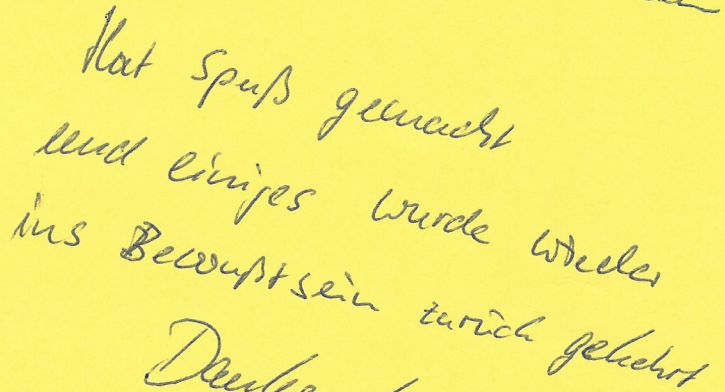 Hat Spaß gemacht
und einiges wurde wieder
ins Bewußtsein zurück gekehrt
Danke